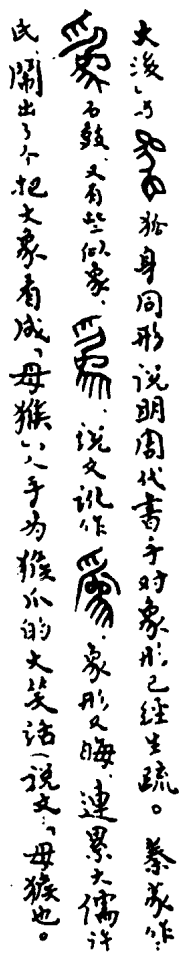 与 身同形说明周代書手对象形已經生疏。秦篆作
石鼓、又有些似象、说文訛作、象形又晦、連累大儒許
氏、鬧出了个把大象看成「母猴」、人手为猴爪的大笑話(说文:「母猴也。